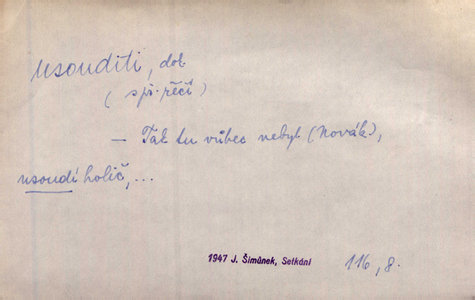 usouditi, dok
(spř. řečí)
– Tak tu vůbec nebyl (Novák),
usoudí holič, ...
1947 J. Šimůnek, Setkání
116, 8.